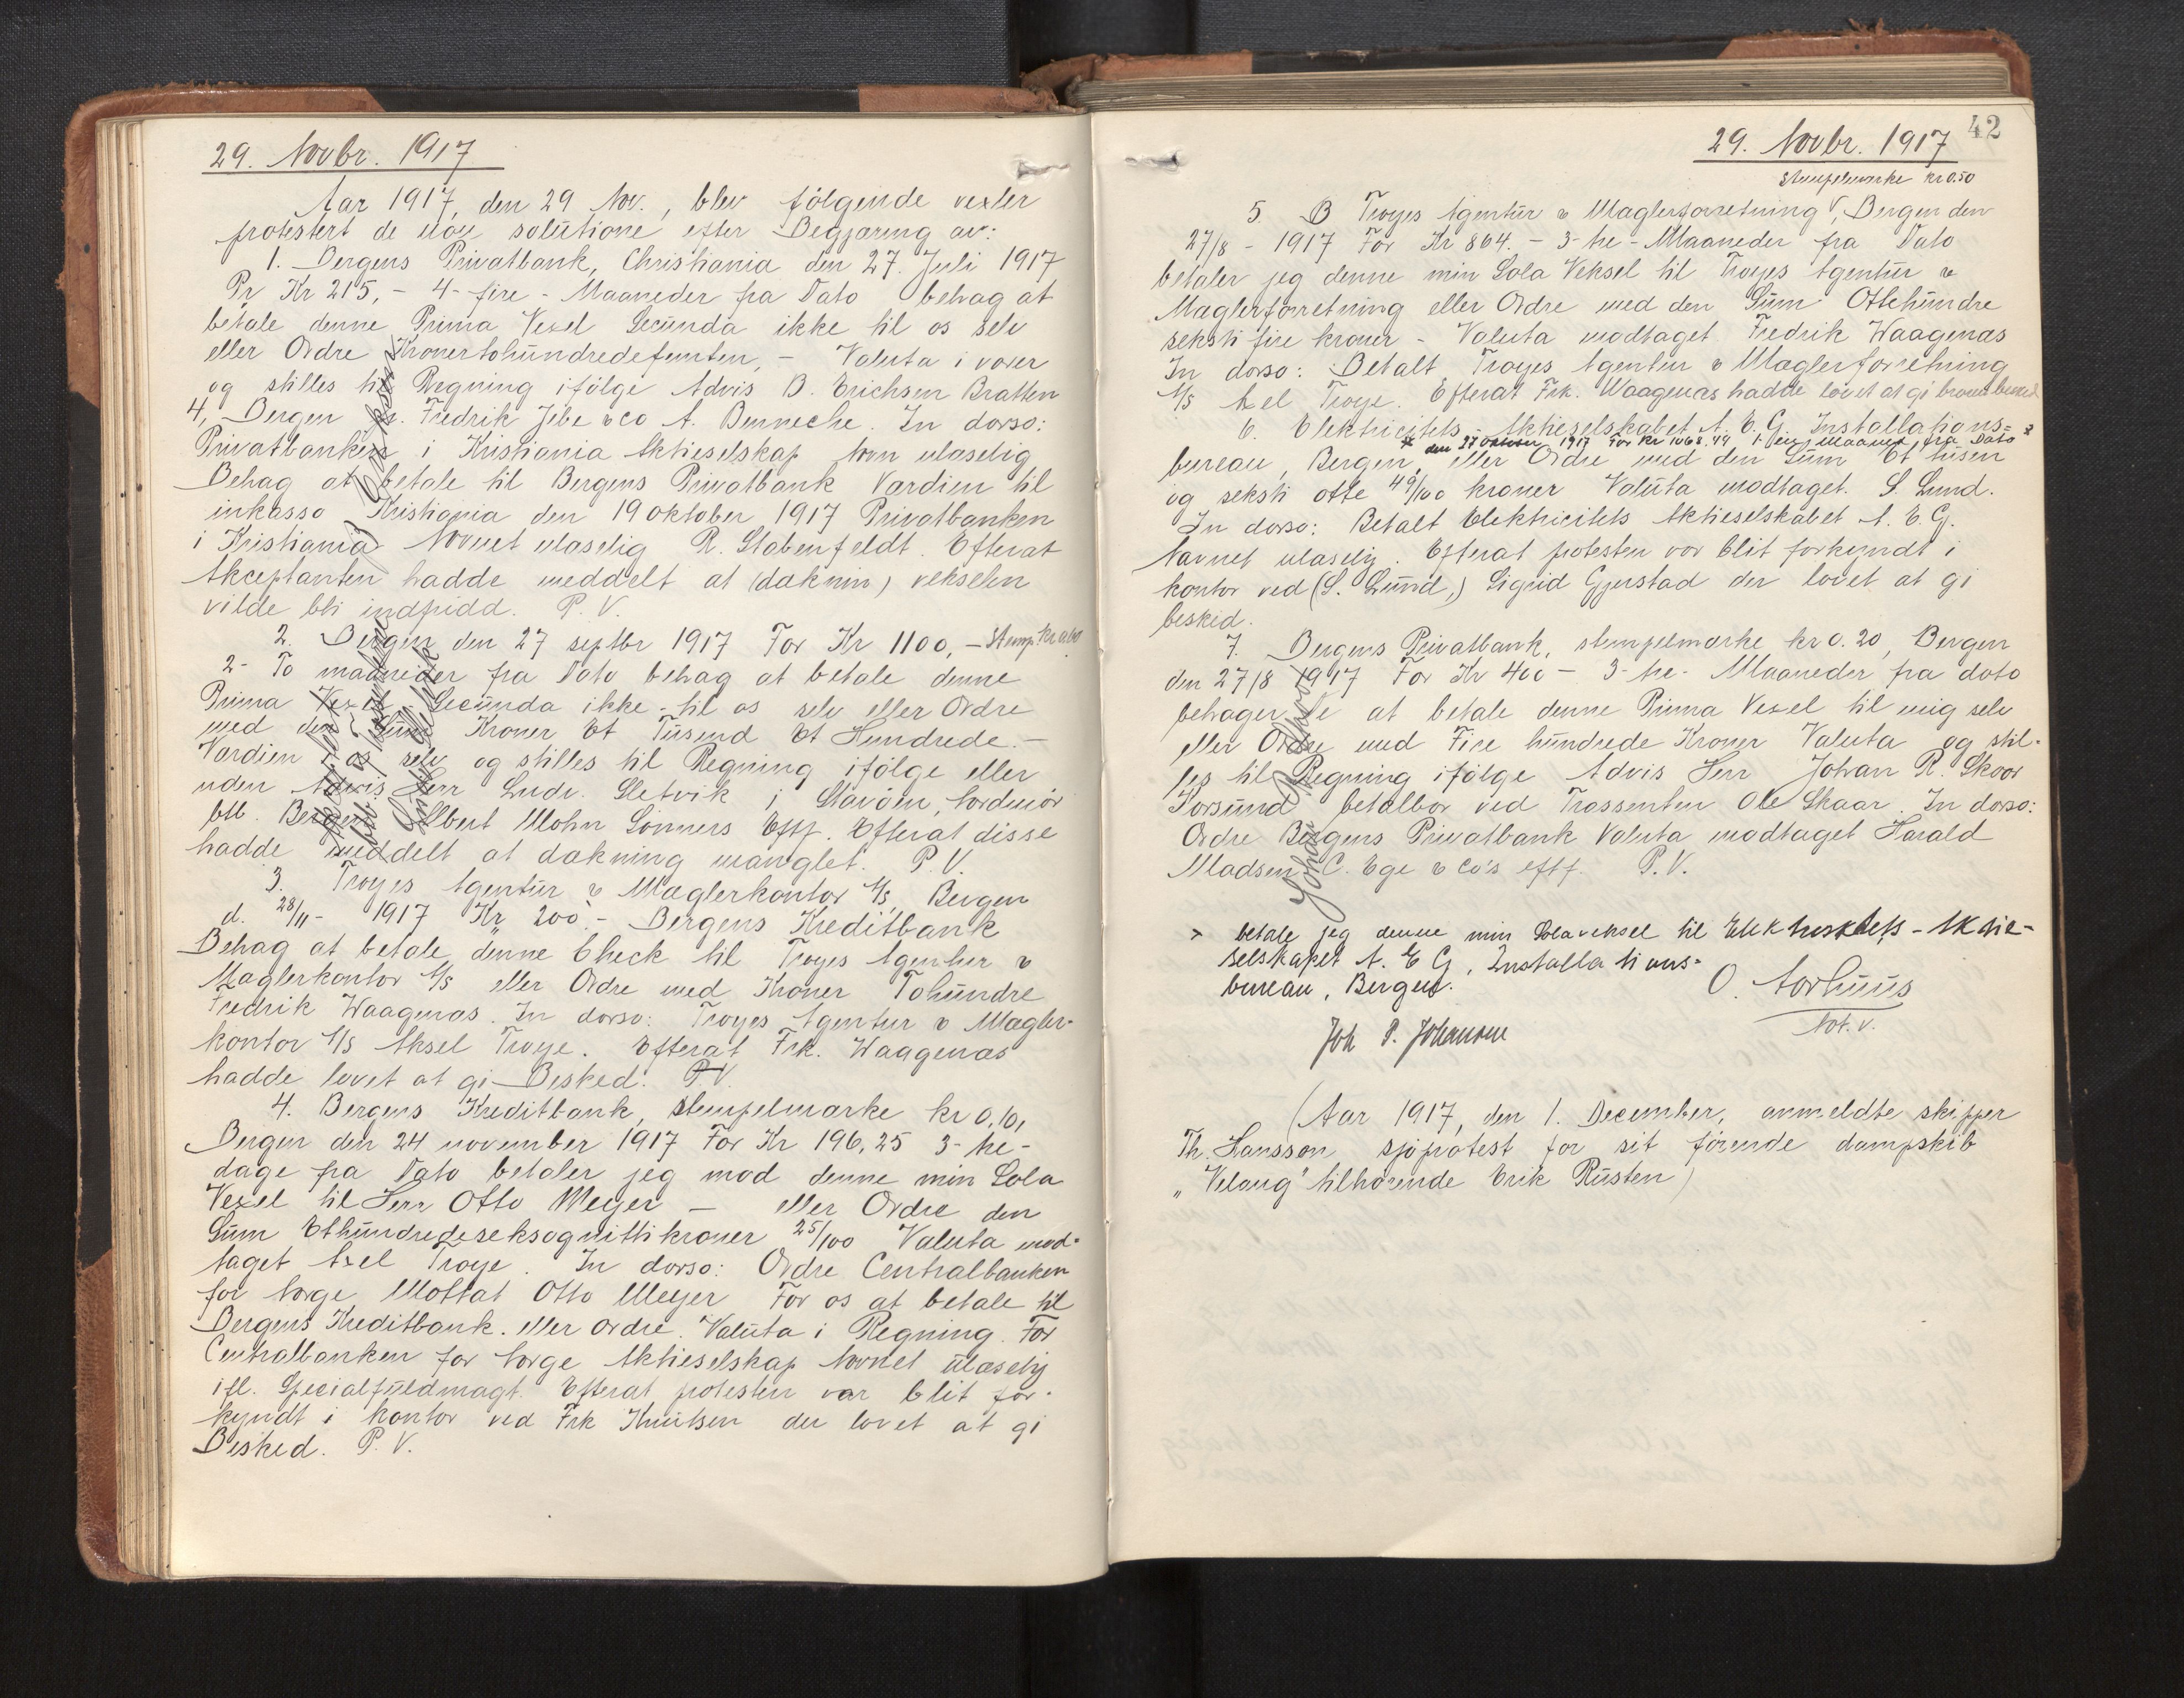 29. Novbr. 1917
Aar 1917, den 29 Nov., blev følgende vexler
protestert de non solutione efter Begjæring av:
1. Bergens Privatbank, Christiania den 27. Juli 1917
Pr Kr 215,- 4-fire-Maaneder fra Dato behag at
betale denne Prima Vexel Secunda ikke til os selv
eller Ordre Kroner tohundredefemten, - Valuta i
og stilles til Regning ifølge Advis B. Erichsen Bratten
4, Bergen Fredrik Jebe & Co A. Benneche. In dorso:
Privatbanken i Kristiania Aktieselskap Navn ulæselig
Behag at betale til Bergens Privatbank Værdien til
inkasso Kristiania den 19 oktober 1917 Privatbanken
i Kristiania Navnet ulæselig R. Stabenfeldt. Efterat
Akceptanten hadde meddelt at (dæknin) vekselen
vilde bli indfridd. P. V.
2. Bergen den 27 septbr 1917 For Kr 1100,- Stemp. kr
2- To maaneder fra Dato behag at betale denne
Prima Vexel Secunda ikke - til os selv eller Ordre
med den Sum Kroner Et Tusend Et Hundrede. -
Værdien i os selv og stilles til Regning ifølge eller
uden Advis Herr Ludv. Sletvik i Stavöen, Nordmör
btlb. Bergen Albert Mohn Sönners Eftf. Efterat disse
hadde meddelt at dækning manglet. P. V.
3. Troyes Agentur & Mæglerkontor A/S, Bergen
d. 28/11 - 1917 Kr 200 - Bergens Kreditbank
Behag at betale denne Check til Troyes Agentur &
Mæglerkontor A/S eller Ordre med Kroner Tohundre
Fredrik Waagenæs. In dorso: Troyes Agentur & Mægler-
kontor A/S Aksel Troye. Efterat Frk. Waagenæs
hadde lovet at gi Besked. P.V.
4. Bergens Kreditbank, Stempelmærke kr 0,10,
Bergen den 24 november 1917 For Kr 196,25 3-tre-
dage fra Dato betaler jeg mod denne min Sola
Vexel til Herr Otto Meyer - eller Ordre den
Sum Ethundredeseksognittikroner 25/100 Valuta mod-
taget Axel Troye. In dorso: Ordre Centralbanken
for Norge Mottat Otto Meyer For os at betale til
Bergens Kreditbank. eller ordre. Valuta i Regning. For
Centralbanken for Norge Aktieselskap Navnet ulæselig
ifl. Specialfuldmagt. Efterat protesten var blit for-
kyndt i kontor ved Frk Knutsen der lovet at gi
Besked. P. V.
42
29. Novbr. 1917
Stempelmærke kr 0.50
5 B Troyes Agentur & Mæglerforretning, Bergen den
27/8 - 1917 For Kr 864. - 3-tre-Maaneder fra Dato
betaler jeg denne min Sola Veksel til Troyes Agentur &
Mæglerforretning eller Ordre med den Sum Ottehundre
seksti fire kroner - Valuta modtaget Fredrik Waagenæs
In dorso: Betalt Troyes Agentur & Mæglerforretning
A/S Axel Troye. Efterat Frk. Waagenæs hadde lovet at gi besked
6. Elektricitets-Aktieselskabet A. E. G. Installations-
den 27 oktober 1917 For Kr 1068.49 1-en Maaned fra Dato
bureau, Bergen, eller Ordre med den Sum Et tusen
og seksti otte 49/100 kroner Valuta modtaget. S. Lund.
In dorso: Betalt Elektricitets Aktieselskabet A. E. G.
Navnet ulæselig. Efterat protesten var blit forkyndt i
kontor ved (S. Lund,) Sigrid Gjerstad der lovet at gi
besked.
7. Bergens Privatbank, stempelmærke kr 0.20, Bergen
den 27/8 1917 For Kr 400 - 3-tre-Maaneder fra dato
behager De at betale denne Prima Vexel til mig selv
eller Ordre med Fire hundrede Kroner Valuta og stil-
les til Regning ifølge Advis Herr Johan R. Skoor
Korsund betalbar ved Trassenten Ole Skaar. In dorso:
Ordre Bergens Privatbank Valuta modtaget Harald
Madsen C. Ege & Co's eftf. P.V.
betale jeg denne min Solaveksel til Elektricitets-Aktie-
selskapet A. E G, Installations-
bureau, Bergen.
O. Aarhuus
Not. v.
Joh P. Johansen
(Aar 1917, den 1. December, anmeldte skipper
Th. Hansson sjøprotest for sit förende dampskib
„Velaug" tilhörende Erik Rusten)